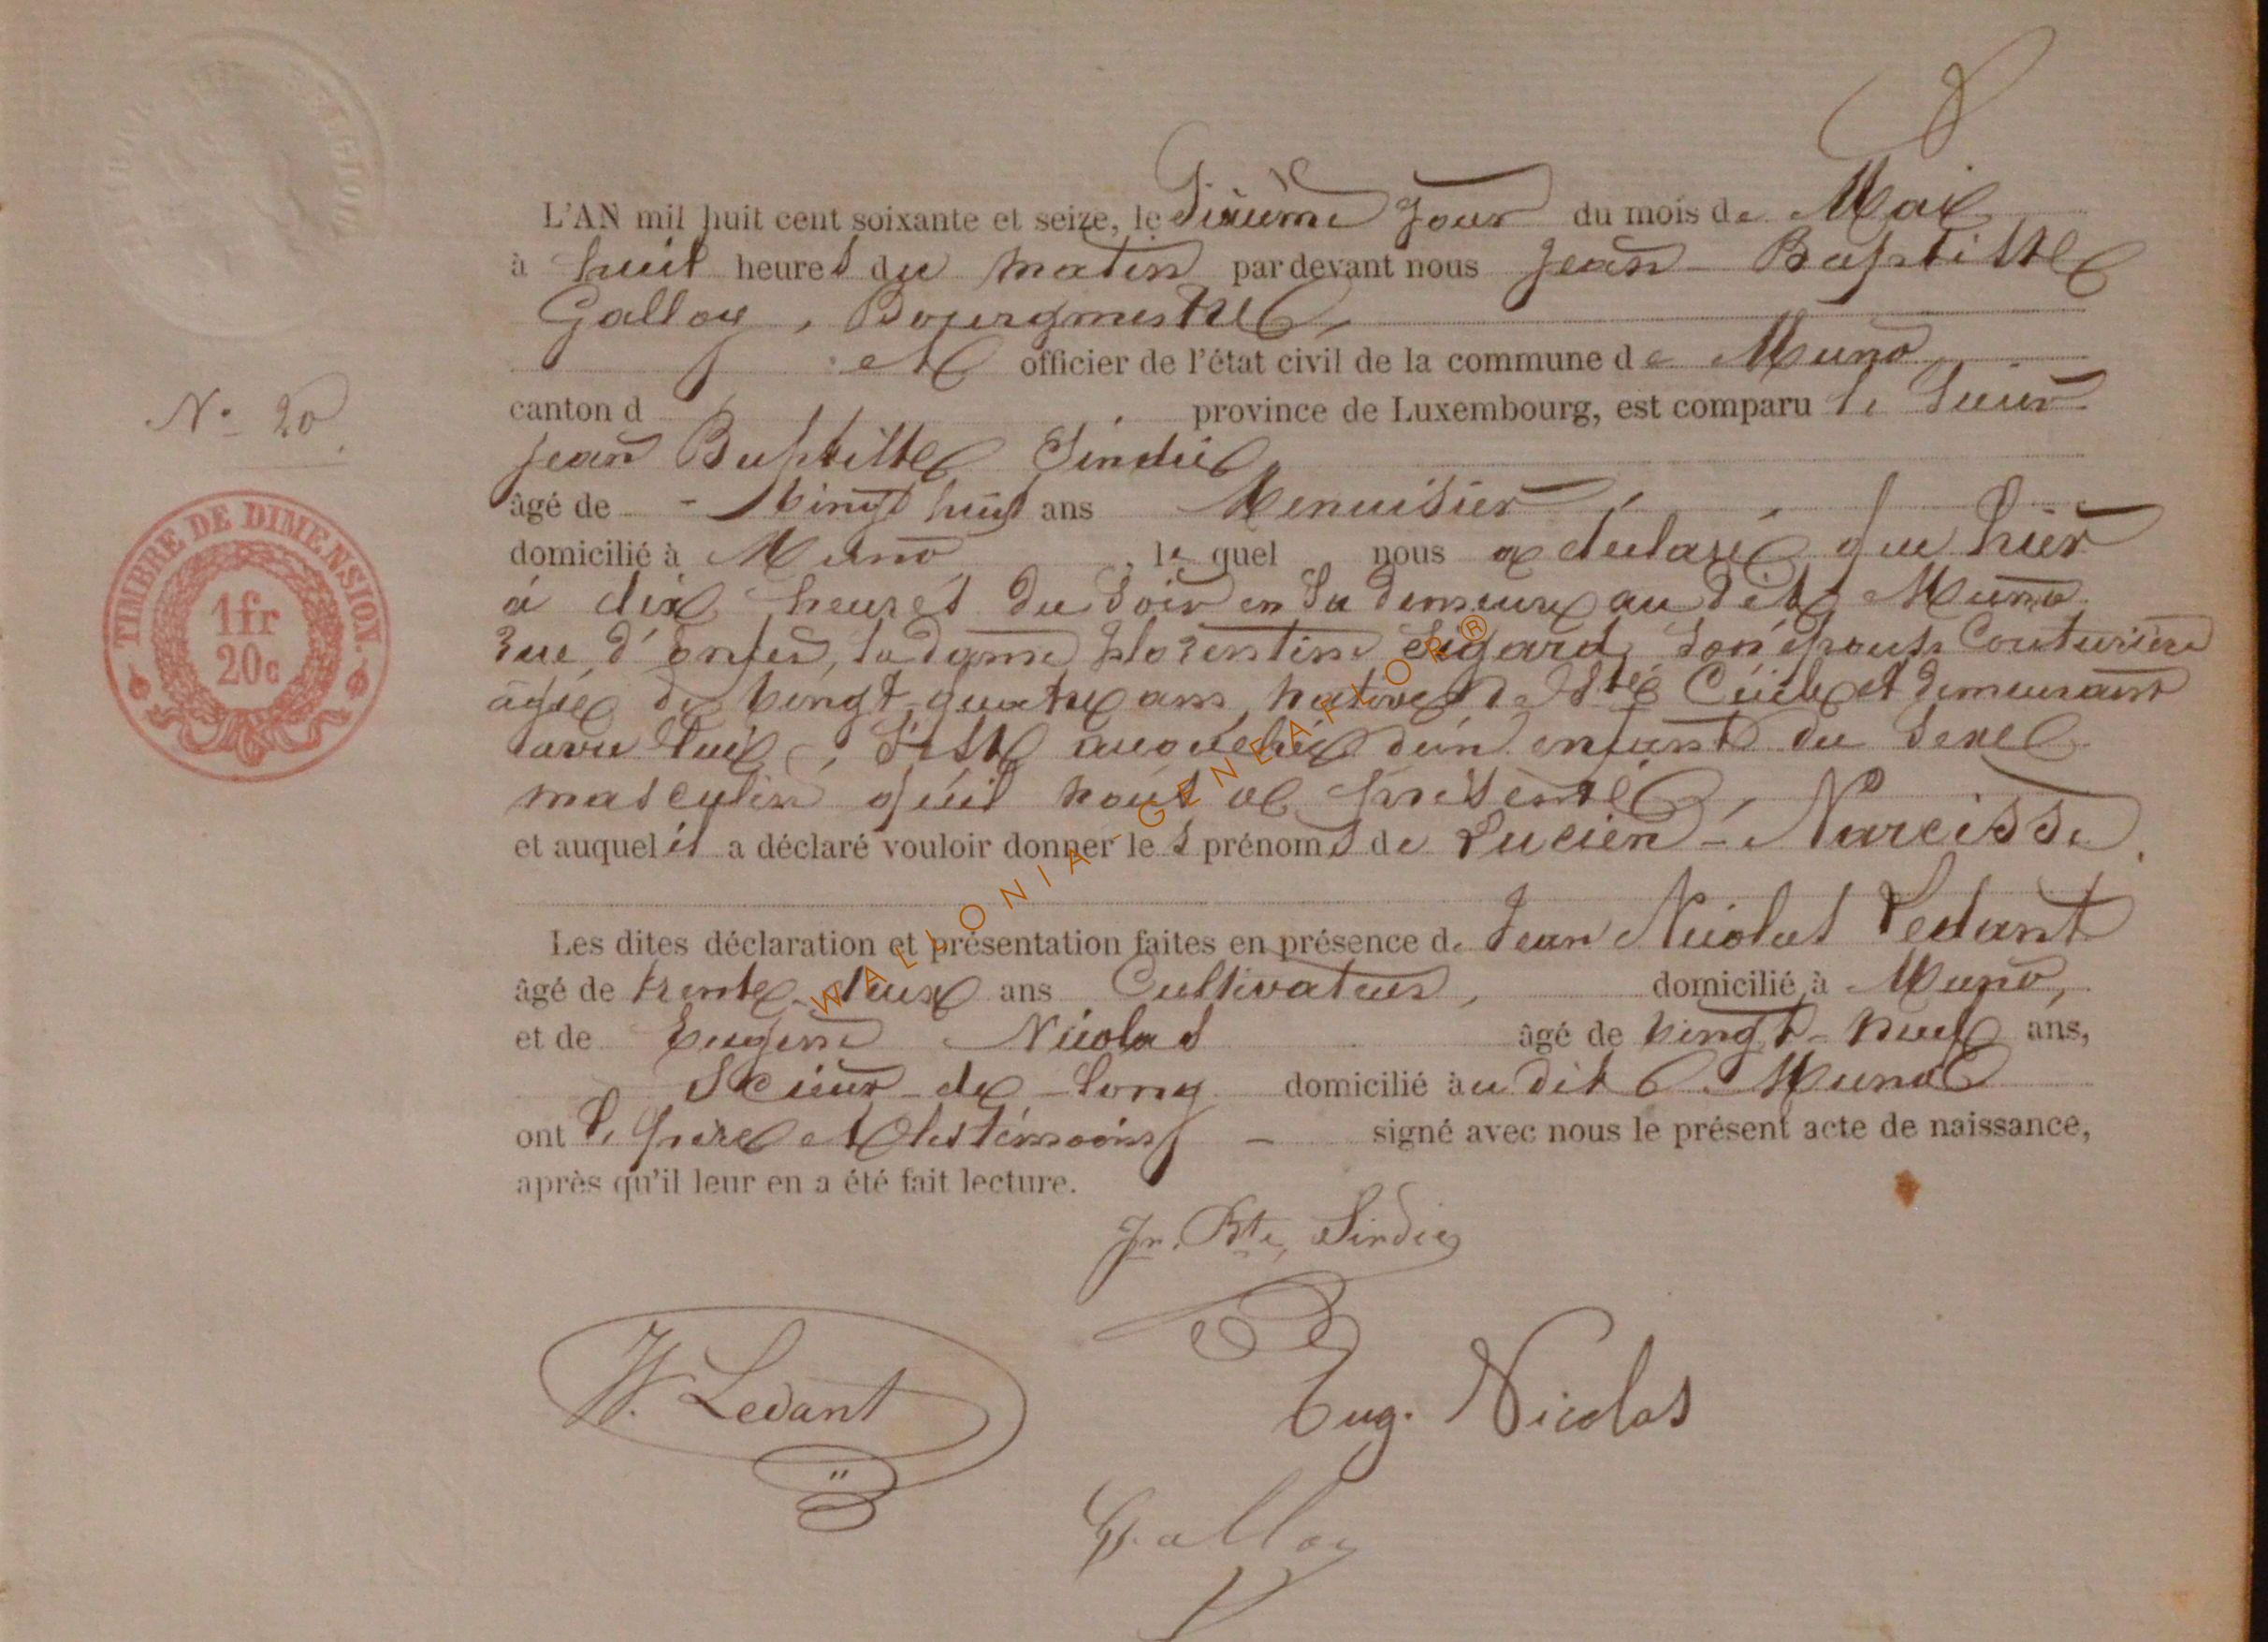 L'AN mil huit cent soixante et seize, le Sixième jour du mois de Mai
à huit heures du matin par devant nous Jean Baptiste
Galloy, Bourgmestre,
et officier de l'état civil de la commune de Muno
canton d province de Luxembourg, est comparu le Sieur
Jean Baptiste Sindic,
âgé de vingt huit ans Menuisier,
domicilié à Muno, lequel nous a déclaré que hier
à dix heures du soir en sa demeure au dit Muno
rue d'Enfer, la dame Florentine Sigard, son épouse Couturière
âgée de vingt-quatre ans, native de Ste Cécile et demeurant
avec lui, s'est accouchée d'un enfant du sexe
masculin qu'il nous a présenté,
et auquel il a déclaré vouloir donner les prénoms de Lucien-Narcisse.
Les dites déclaration et présentation faites en présence de Jean Nicolas Ledant
âgé de trente-deux ans Cultivateur, domicilié à Muno,
et de Eugène Nicolas âgé de vingt-neuf ans,
Scieur-de-long domicilié au dit Muno
ont le père et les témoins signé avec nous le présent acte de naissance,
après qu'il leur en a été fait lecture.
N° 20
TIMBRE DE DIMENSION.
1fr
20c
Jn. Bte Sindic
Ledant
Eug. Nicolas
Galloy
WALLONIA-GENEAFLOR®